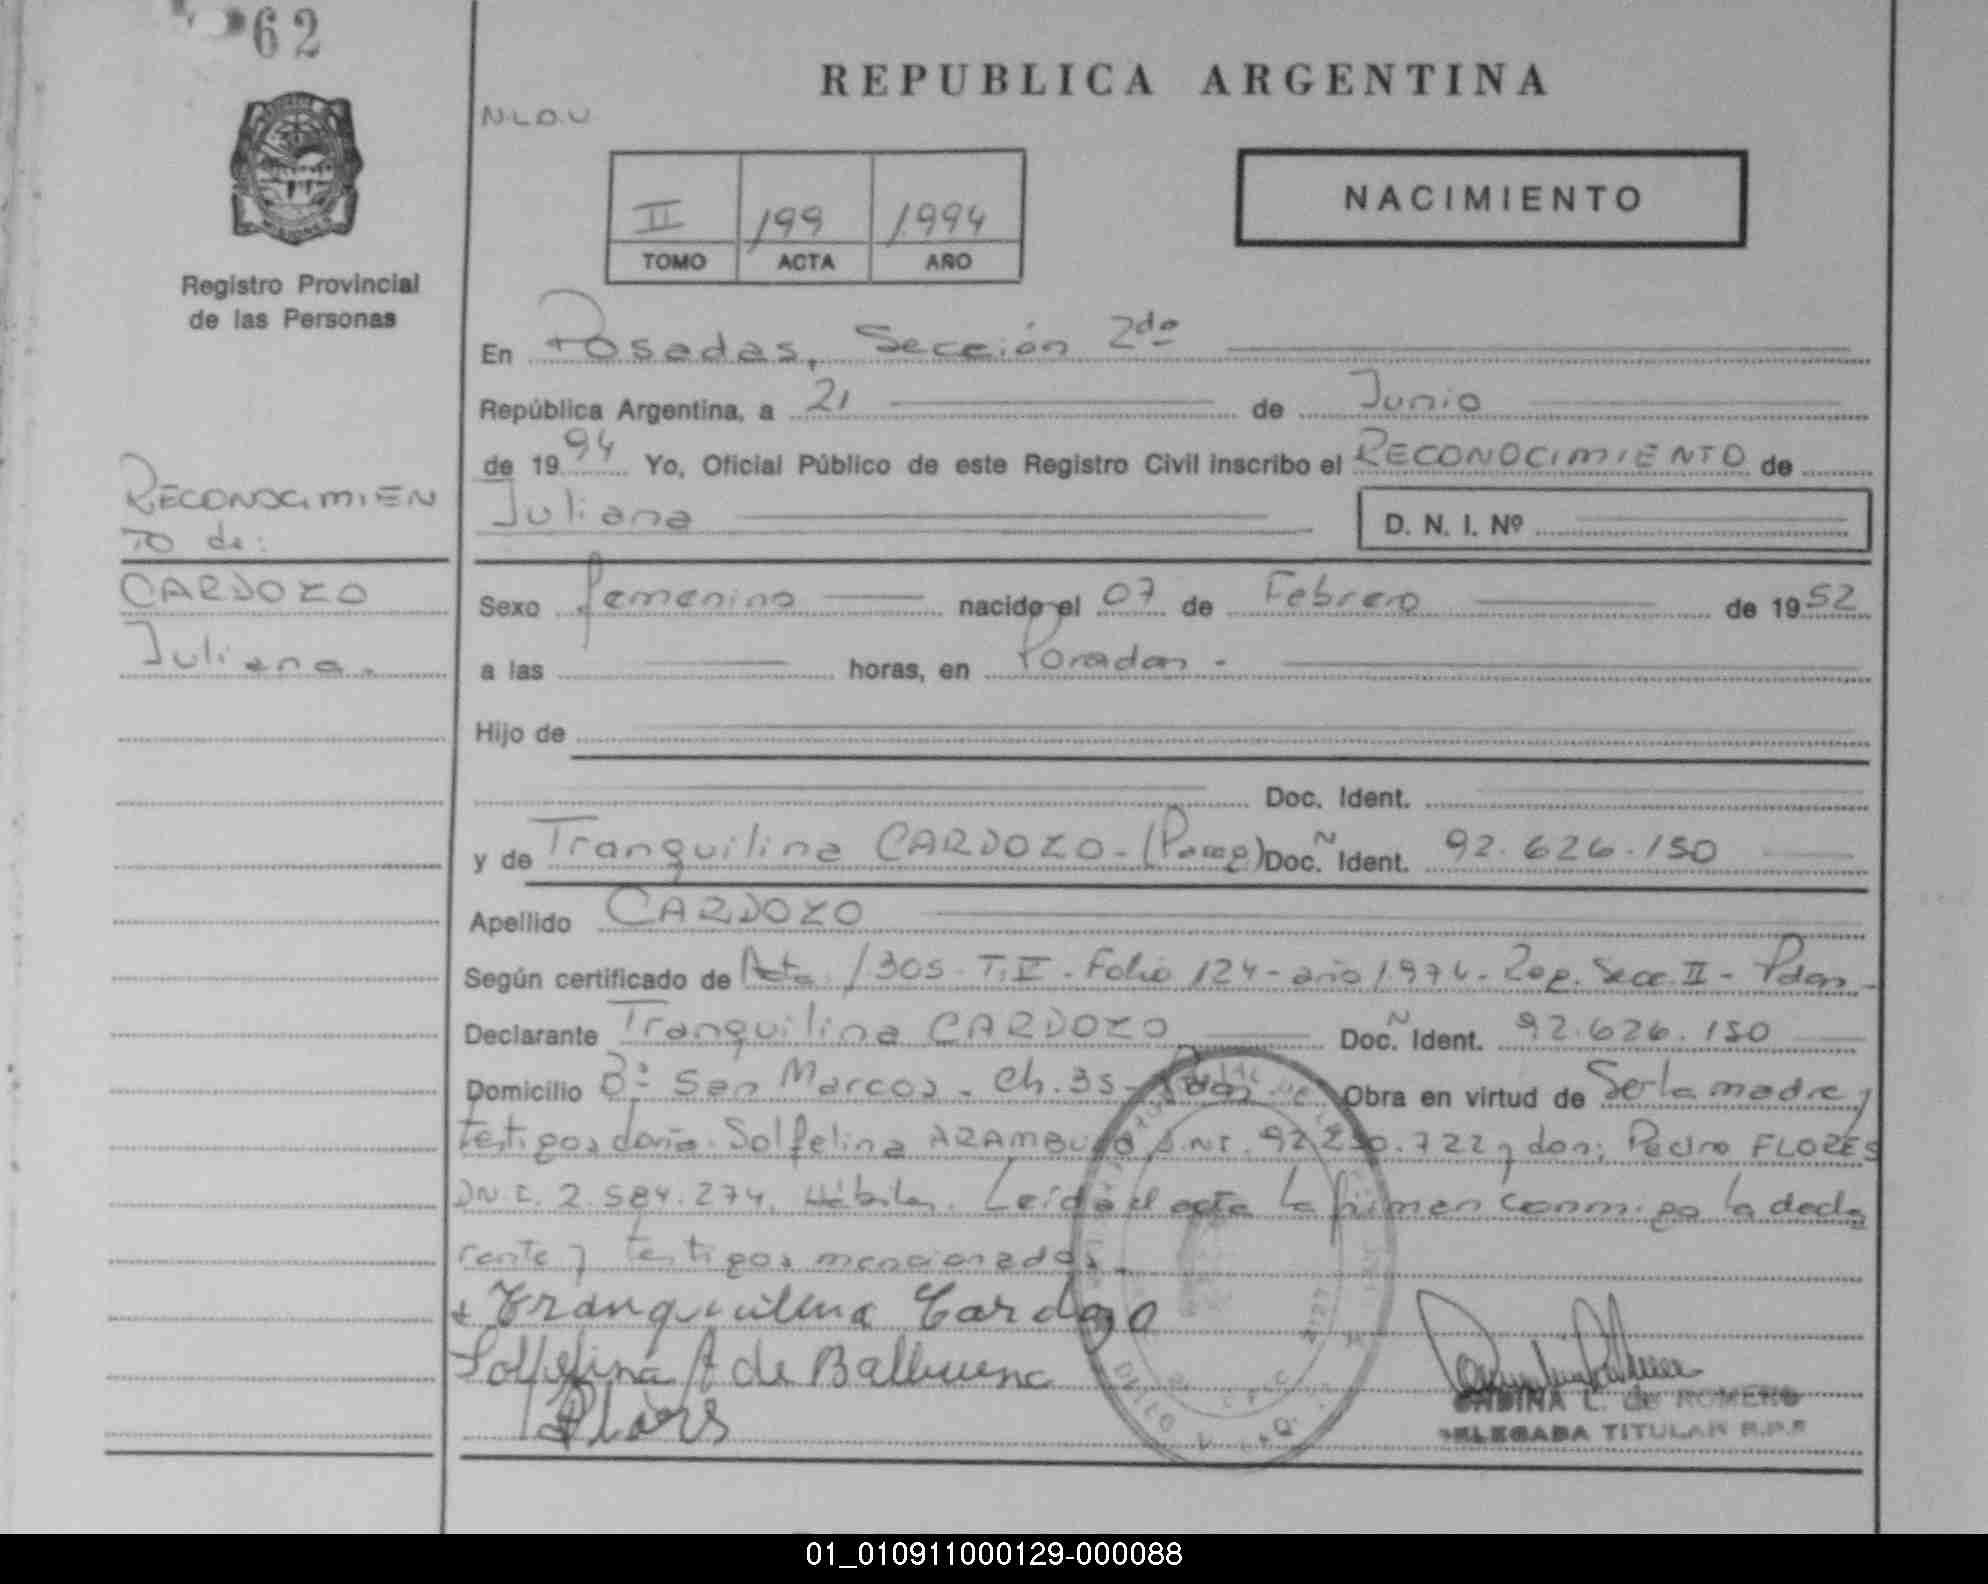 62
REPUBLICA ARGENTINA
N.L.O.U.
NACIMIENTO
II 199 1.994
TOMO ACTA AÑO
Registro Provincial
de las Personas
En Posadas, Sección 2da
República Argentina, a 21 de Junio
de 1994 Yo, Oficial Público de este Registro Civil inscribo el RECONOCIMIENTO de
Juliana D. N. I. Nº
RECONOCIMIEN
TO de:
CARDOZO
Juliana.
Sexo femenino nacido el 07 de Febrero de 1952
a las horas, en Posadas.
Hijo de
Doc. Ident.
y de Tranquilina CARDOZO - (Parag) Doc. Ident. 92.626.150
Apellido CARDOZO
Según certificado de Acta 1.305 - T. V - Folio 124 - año 1.974 - Secc. II - Pdas -
Declarante Tranquilina CARDOZO Doc. Ident. 92.626.150
Domicilio Bº San Marcos - Ch. 35 - Pdas Obra en virtud de Ser la madre y
testigos doña: Solfelina ARAMBURO D.N.I. 92.230.722 y don: Pedro FLORES
D.N.I. 2.584.274, Hábiles. Leída el acta la firman conmigo la decla
rante y testigos mencionados.
+ Tranquilina Cardozo
Solfelina A de Balbuena
L. de ROMERO
DELEGADA TITULAR R.P.P
01_010911000129-000088